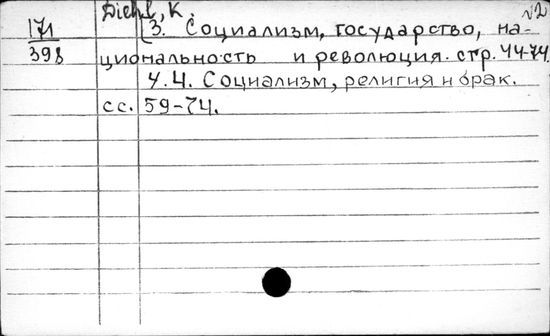 Diehl, K. №2
171 Ч.3. Социализм, государство, на-
398 циональность и революция. стр. 44-74.
Ч.4. Социализм, религия и брак.
сс. 59-74.